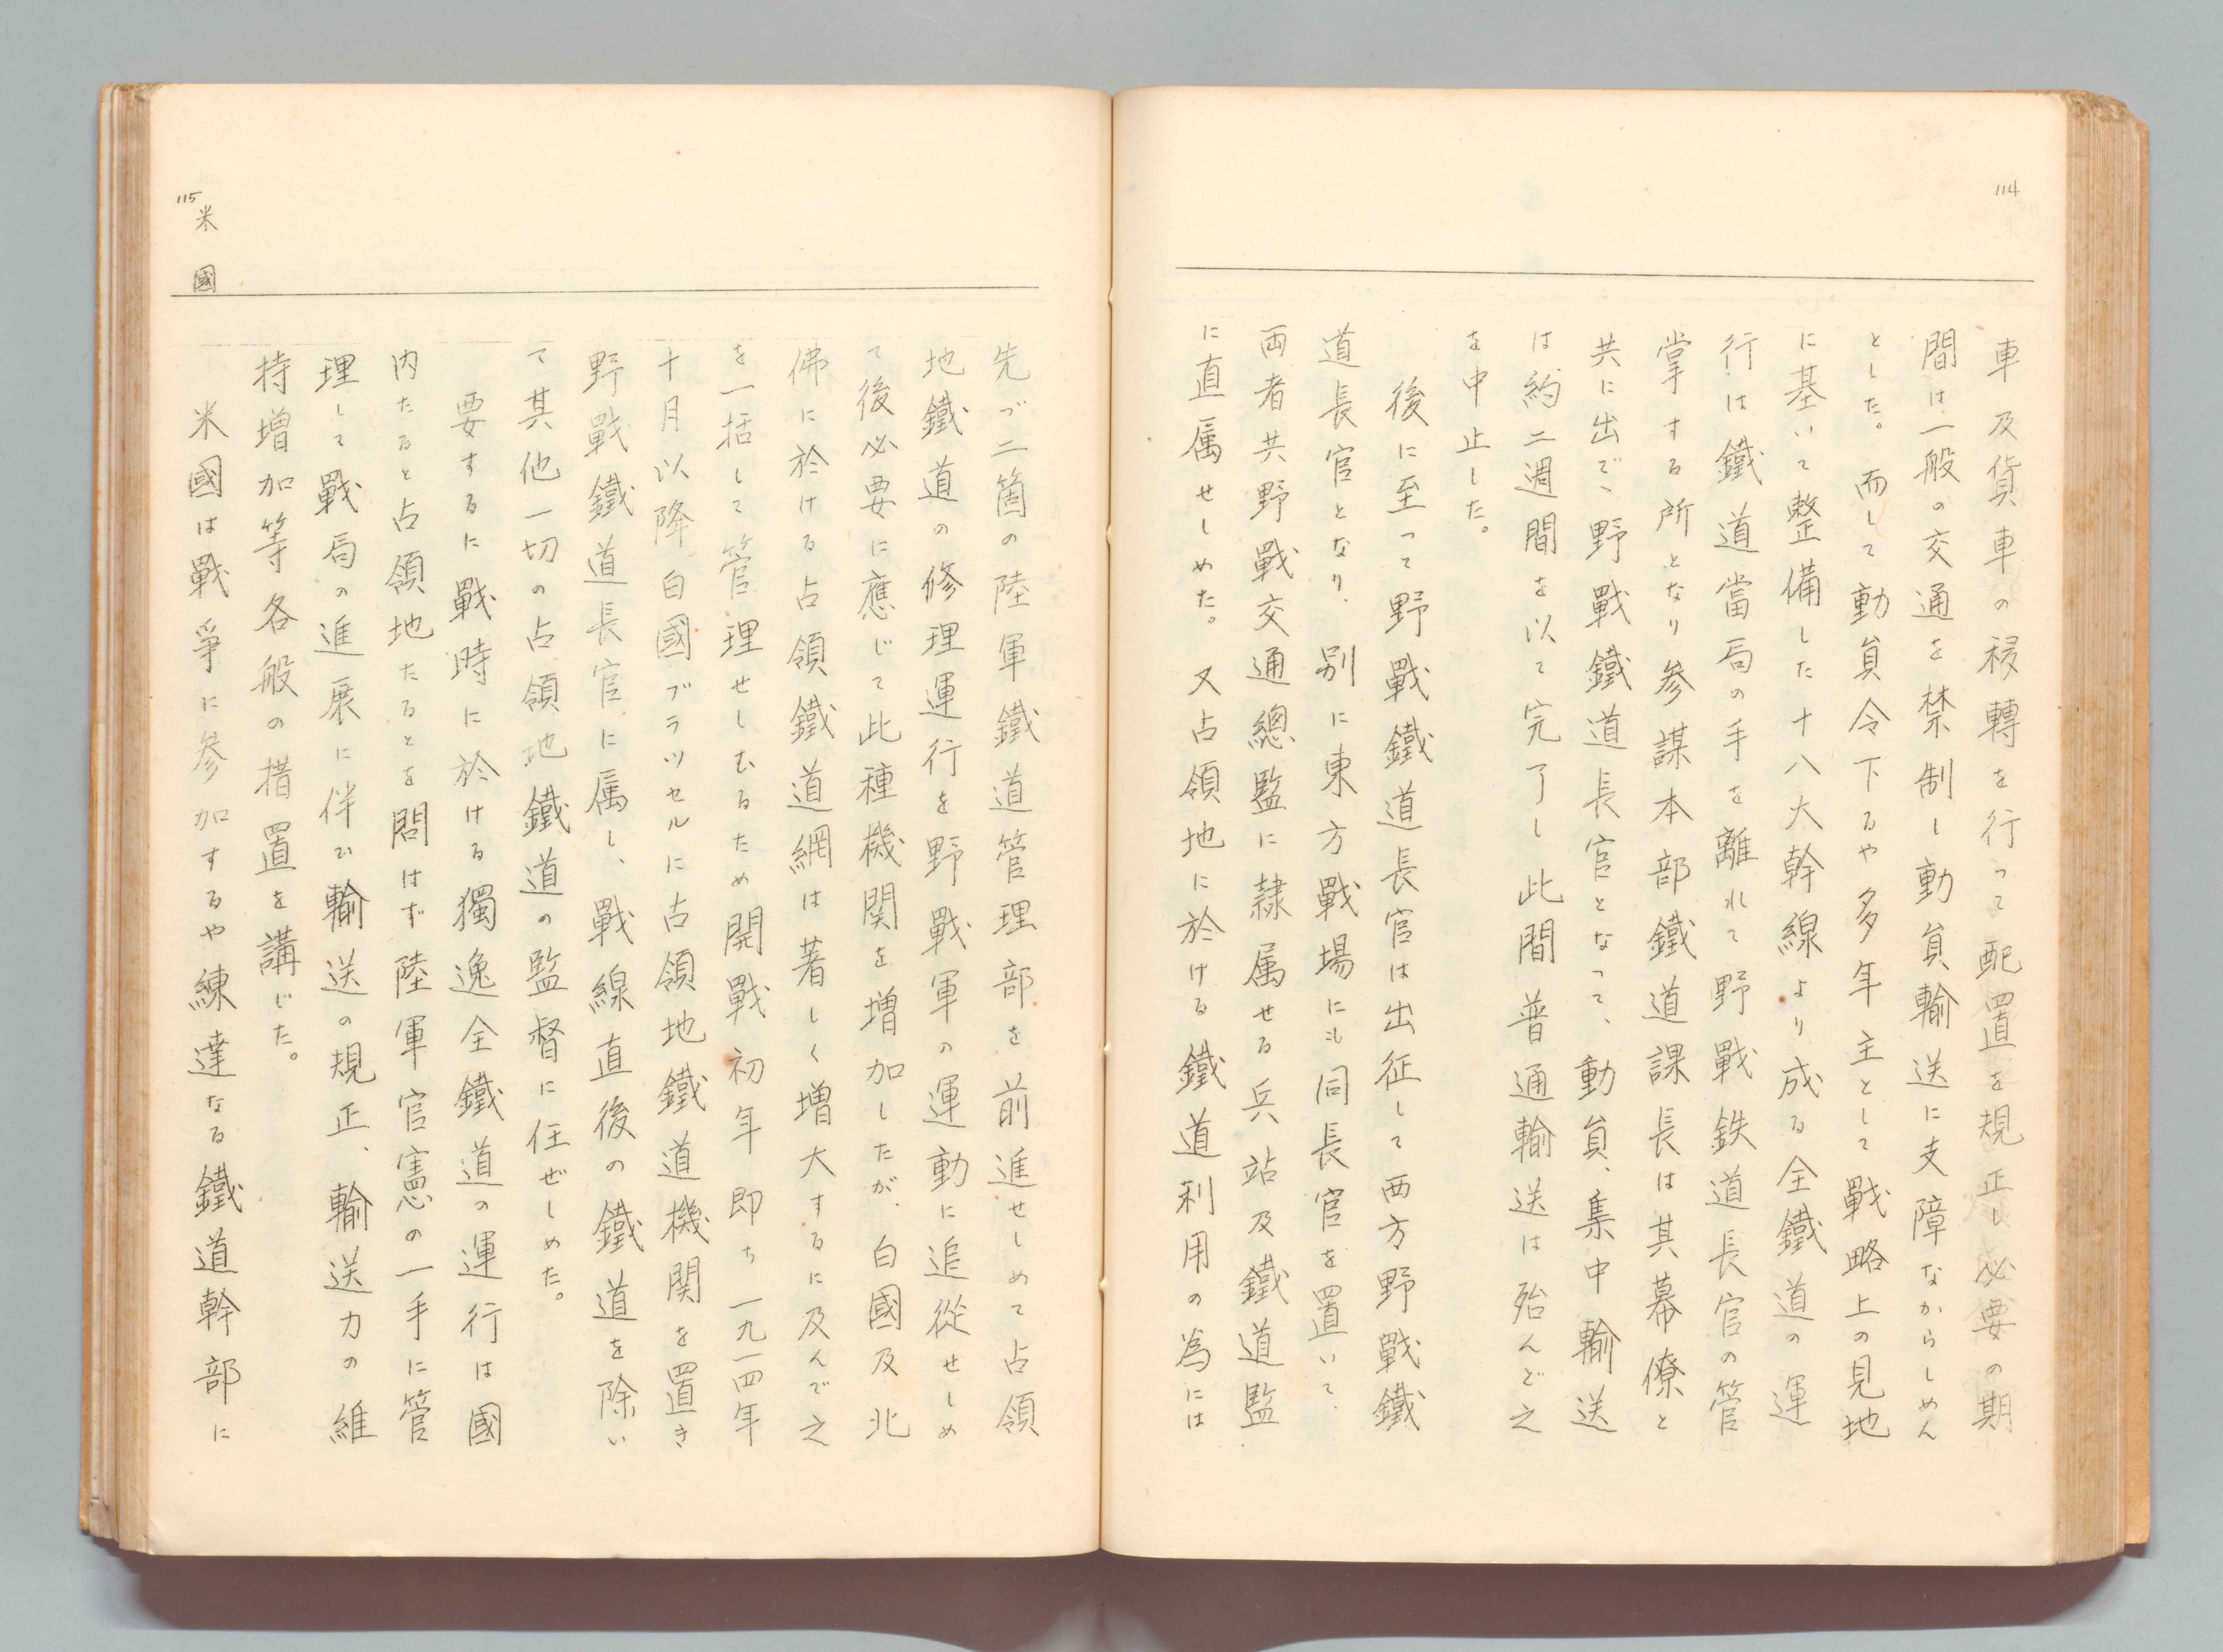 114
車及貨車の移轉を行って配置を規正し必要の期
間は一般の交通を禁制し動員輸送に支障なからしめん
とした。而して動員令下るや多年主として戰略上の見地
に基いて整備した十八大幹線より成る全鐵道の運
行は鐵道當局の手を離れて野戰鉄道長官の管
掌する所となり参謀本部鐵道課長は其幕僚と
共に出で、野戰鐵道長官となって、動員、集中輸送
は約二週間を以て完了し此間普通輸送は殆んど之
を中止した。
後に至って野戰鐵道長官は出征して西方野戰鐵
道長官となり、別に東方戰場にも同長官を置いて、
両者共野戰交通總監に隷属せる兵站及鐵道監
に直属せしめた。又占領地に於ける鐵道利用の為には
115
米國
先づ二箇の陸軍鐵道管理部を前進せしめて占領
地鐵道の修理運行を野戰軍の運動に追從せしめ
て後必要に應じて此種機関を増加したが、白國及北
佛に於ける占領鐵道網は著しく増大するに及んで之
を一括して管理せしむるため開戰初年即ち一九一四年
十月以降白國ブラツセルに占領地鐵道機関を置き
野戰鐵道長官に属し、戰線直後の鐵道を除い
て其他一切の占領地鐵道の監督に任ぜしめた。
要するに戰時に於ける獨逸全鐵道の運行は國
内たると占領地たるとを問はず陸軍官憲の一手に管
理して戰局の進展に伴ひ輸送の規正、輸送力の維
持増加等各般の措置を講じた。
米國は戰爭に参加するや練達なる鐵道幹部に